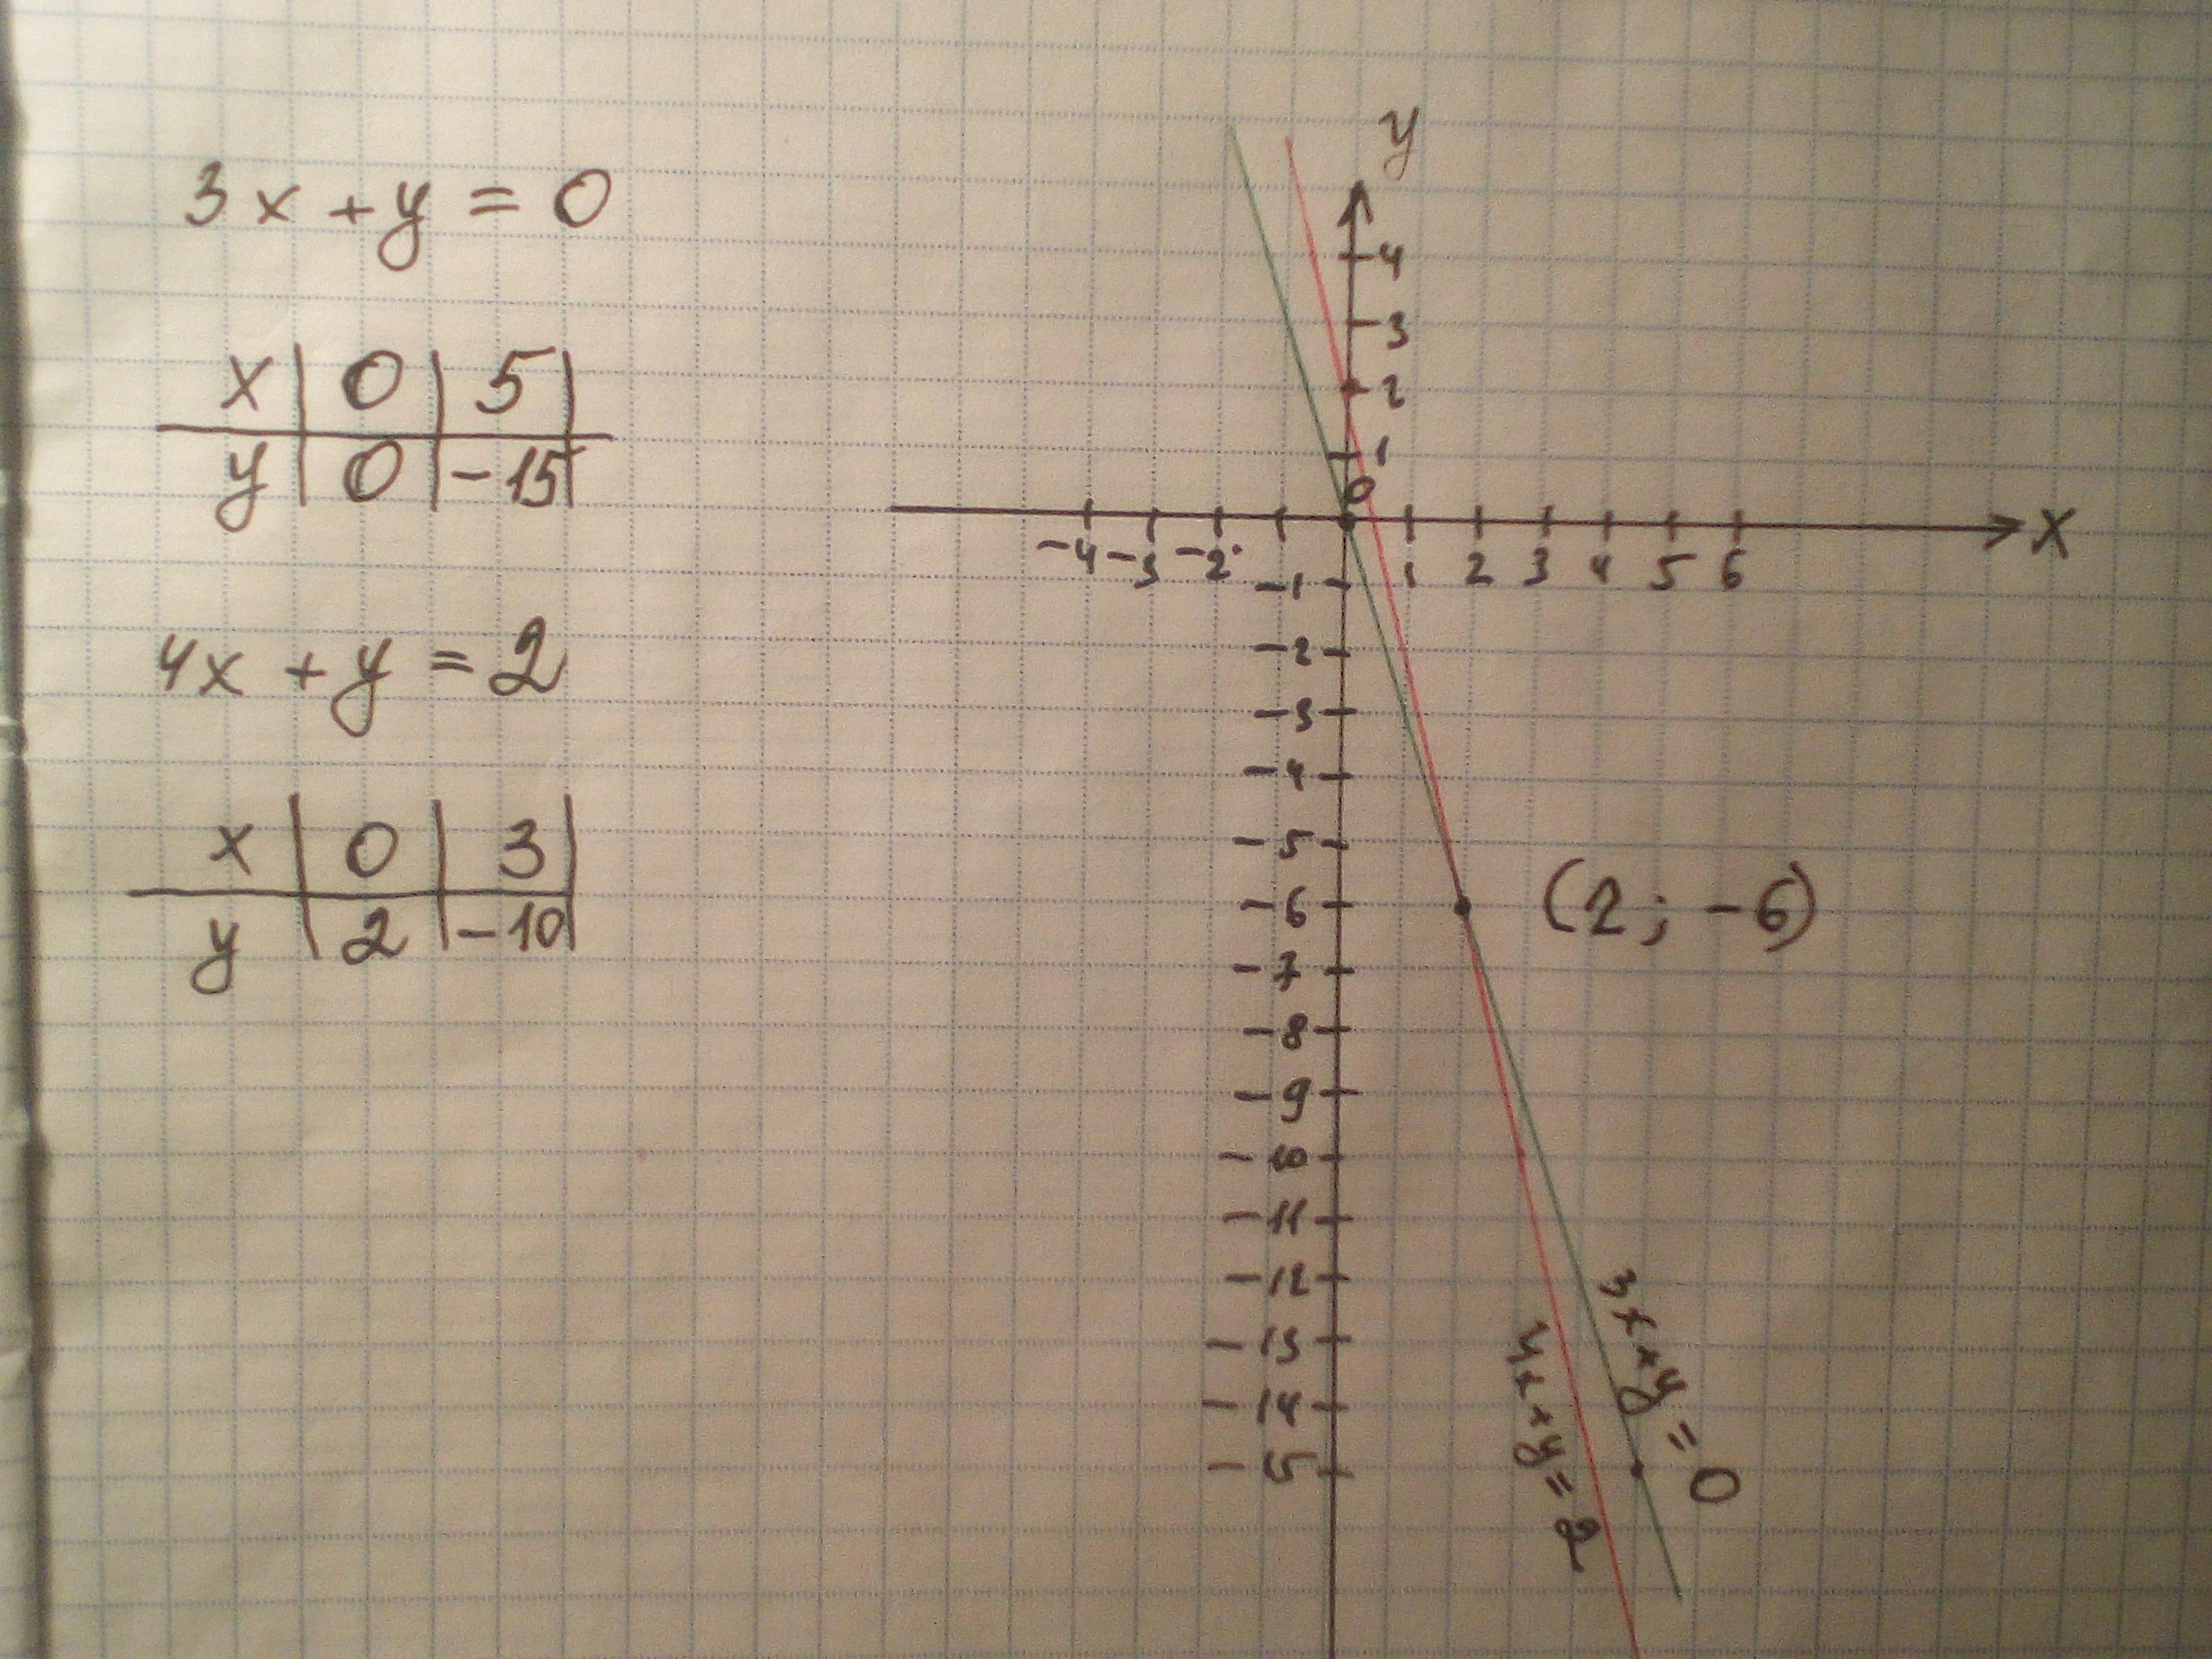 3x + y = 0
x | 0 | 5 |
y | 0 | -15 |
4x + y = 2
x | 0 | 3 |
y | 2 | -10 |
y
4
3
2
1
0
-4 -3 -2 1 2 3 4 5 6 x
-1
-2
-3
-4
-5
-6 (2 ; -6)
-7
-8
-9
-10
-11
-12
-13
-14
-15
3x + y = 0
4x + y = 2